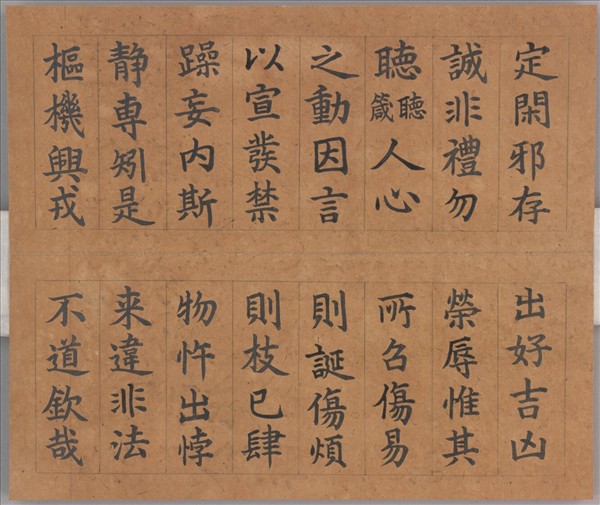 定閑邪存
誠非禮勿
聽聽箴人心
之動因言
以宣發禁
躁妄内斯
静専矧是
樞機興戎
出好吉凶
榮辱惟其
所召傷易
則誕傷煩
則枝已肆
物忤出悖
来違非法
不道欽哉